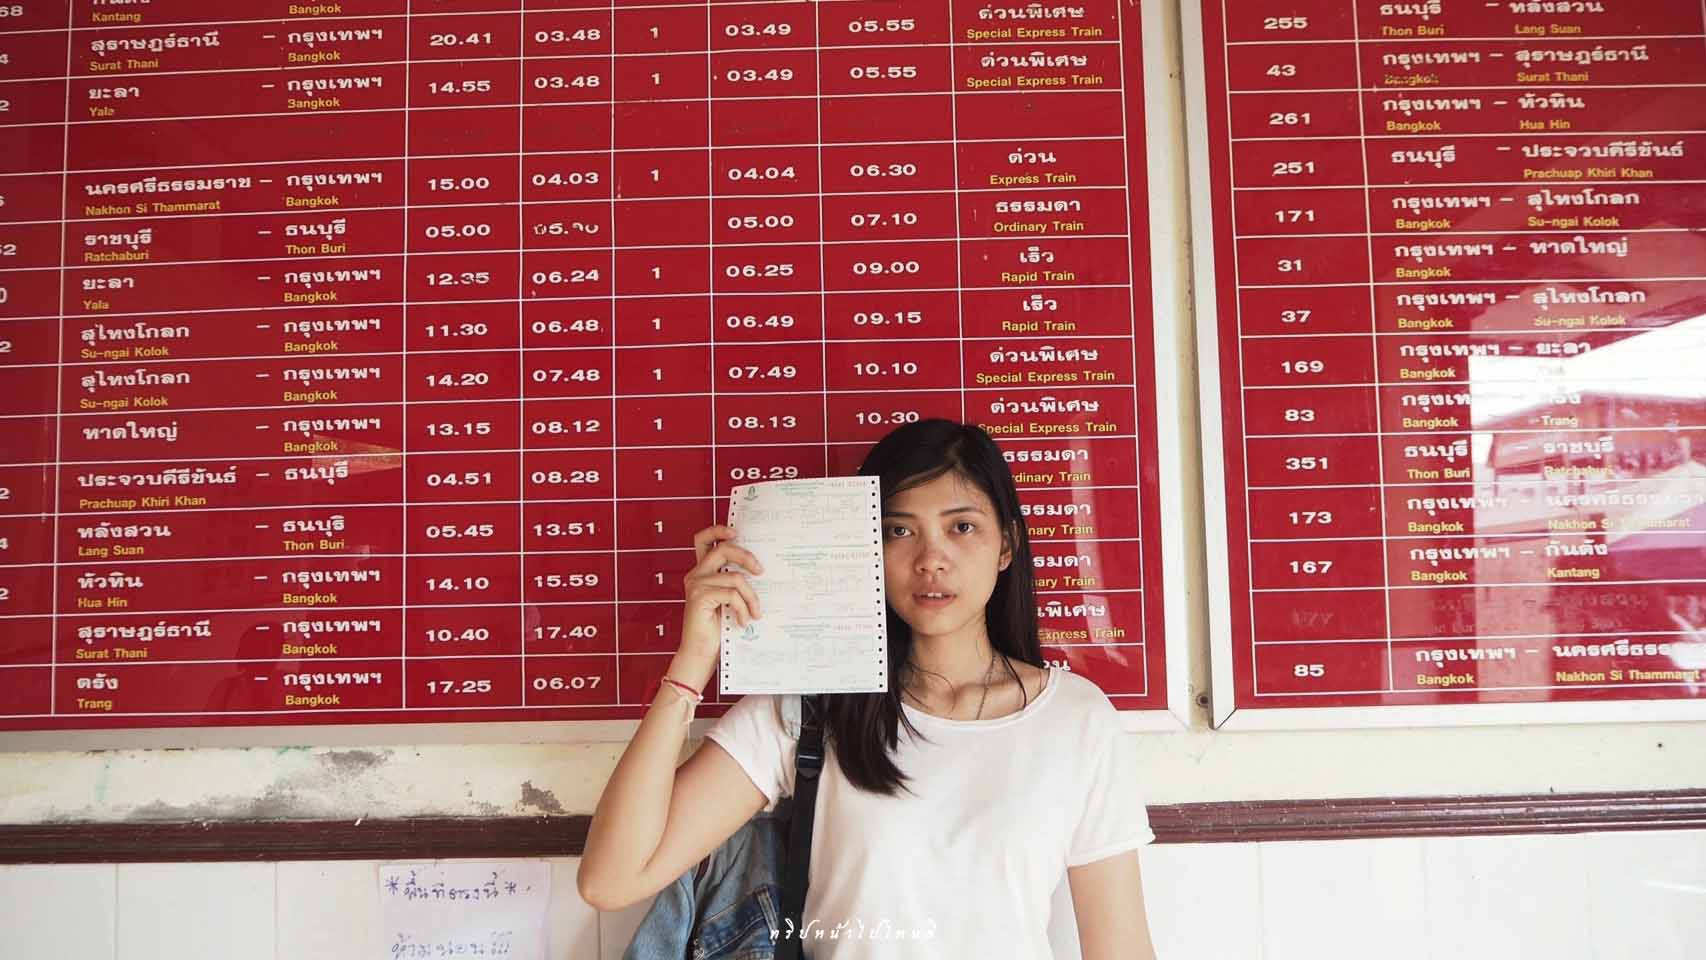 68 กันตัง Kantang Bangkok
4 สุราษฎร์ธานี – กรุงเทพฯ 20.41 03.48 1 03.49 05.55 ด่วนพิเศษ
Surat Thani Bangkok Special Express Train
2 ยะลา – กรุงเทพฯ 14.55 03.48 1 03.49 05.55 ด่วนพิเศษ
Yala Bangkok Special Express Train
6 นครศรีธรรมราช – กรุงเทพฯ 15.00 04.03 1 04.04 06.30 ด่วน
Nakhon Si Thammarat Bangkok Express Train
52 ราชบุรี – ธนบุรี 05.00 05.00 07.10 ธรรมดา
Ratchaburi Thon Buri Ordinary Train
0 ยะลา – กรุงเทพฯ 12.35 06.24 1 06.25 09.00 เร็ว
Yala Bangkok Rapid Train
2 สุไหงโกลก – กรุงเทพฯ 11.30 06.48 1 06.49 09.15 เร็ว
Su-ngai Kolok Bangkok Rapid Train
สุไหงโกลก – กรุงเทพฯ 14.20 07.48 1 07.49 10.10 ด่วนพิเศษ
Su-ngai Kolok Bangkok Special Express Train
หาดใหญ่ – กรุงเทพฯ 13.15 08.12 1 08.13 10.30 ด่วนพิเศษ
Bangkok Special Express Train
2 ประจวบคีรีขันธ์ – ธนบุรี 04.51 08.28 1 08.29 ธรรมดา
Prachuap Khiri Khan rdinary Train
4 หลังสวน – ธนบุรี 05.45 13.51 1 รมดา
Lang Suan Thon Buri nary Train
2 หัวหิน – กรุงเทพฯ 14.10 15.59 1 รมดา
Hua Hin Bangkok ary Train
สุราษฎร์ธานี – กรุงเทพฯ 10.40 17.40 1 นพิเศษ
Surat Thani Bangkok Express Train
ตรัง – กรุงเทพฯ 17.25 06.07 วน
Trang Bangkok
255 ธนบุรี – หลังสวน
Thon Buri Lang Suan
43 กรุงเทพฯ – สุราษฎร์ธานี
Bangkok Surat Thani
261 กรุงเทพฯ – หัวหิน
Bangkok Hua Hin
251 ธนบุรี – ประจวบคีรีขันธ์
Prachuap Khiri Khan
171 กรุงเทพฯ – สุไหงโกลก
Bangkok Su-ngai Kolok
31 กรุงเทพฯ – หาดใหญ่
Bangkok
37 กรุงเทพฯ – สุไหงโกลก
Bangkok Su-ngai Kolok
169 กรุงเทพฯ – ยะลา
Bangkok
83 กรุงเทพฯ – ตรัง
Bangkok Trang
351 ธนบุรี – ราชบุรี
Thon Buri Ratchaburi
173 กรุงเทพฯ – นครศรีธรรมราช
Bangkok Nakhon Si Thammarat
167 กรุงเทพฯ – กันตัง
Bangkok Kantang
85 กรุงเทพฯ – นครศรีธรรม
Bangkok Nakhon Si Thammarat
*พื้นที่ตรงนี้*
ห้ามนอน!!!
ทริปหน้าไปไหนดี